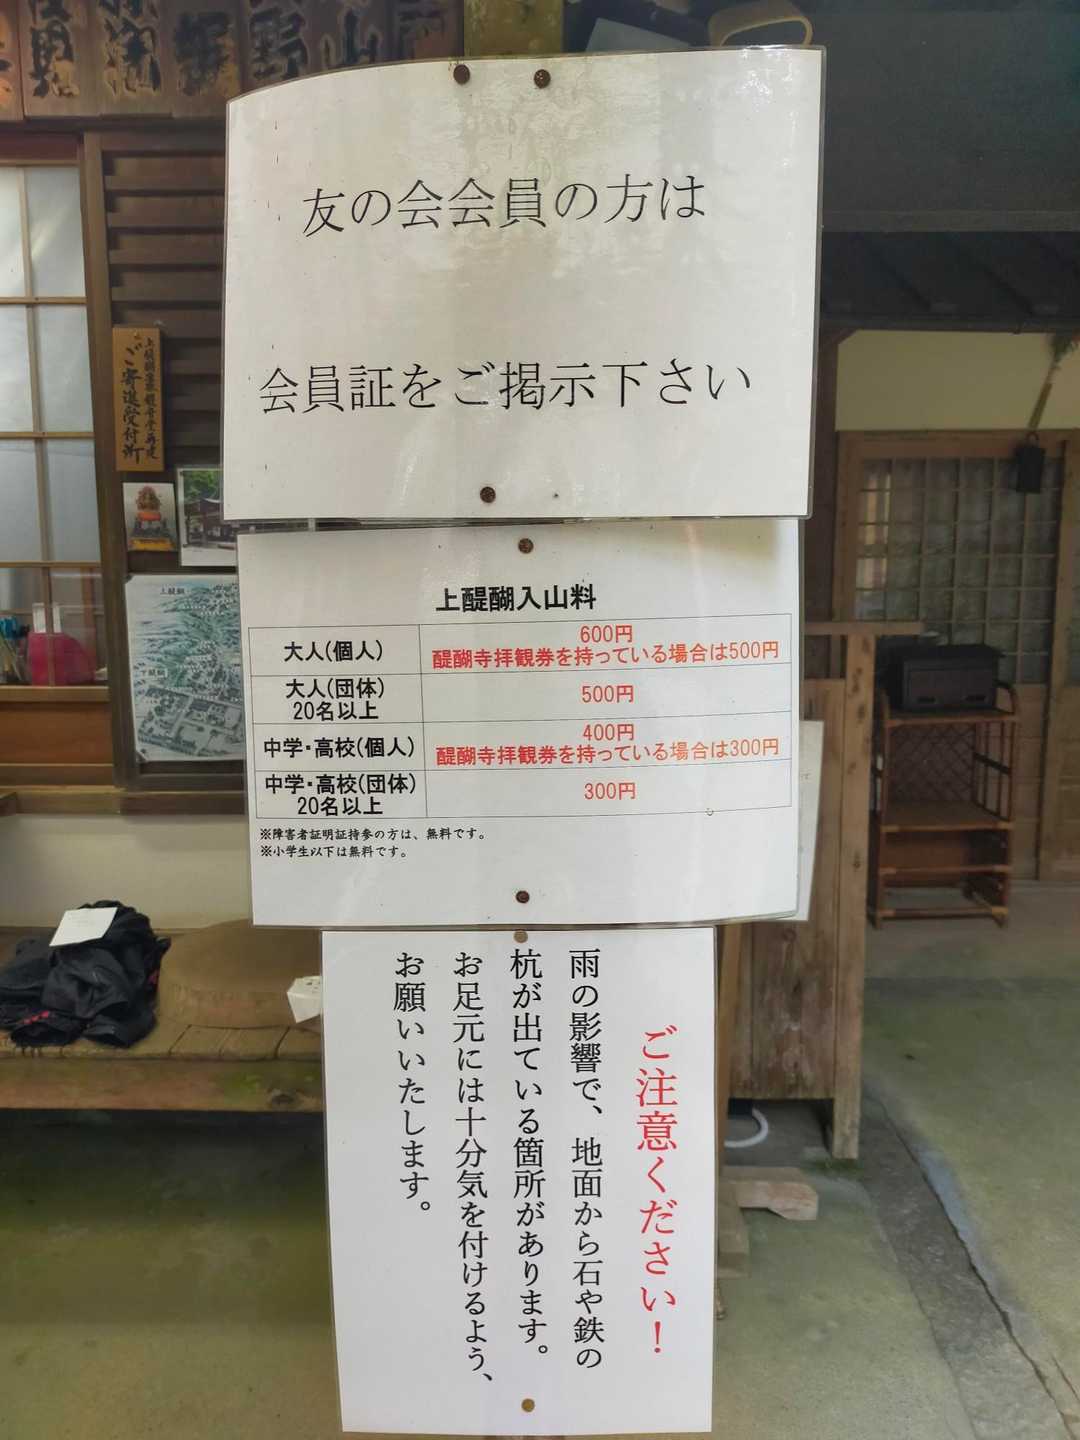 友の会会員の方は
会員証をご掲示下さい
上醍醐入山料
大人(個人)
600円
醍醐寺拝観券を持っている場合は500円
大人(団体)
20名以上
500円
中学・高校(個人)
400円
醍醐寺拝観券を持っている場合は300円
中学・高校(団体)
20名以上
300円
※障害者証明証持参の方は、無料です。
※小学生以下は無料です。
ご注意ください！
雨の影響で、地面から石や鉄の
杭が出ている箇所があります。
お足元には十分気を付けるよう、
お願いいたします。
上醍醐准胝観音堂再建
ご寄進受付所
上醍醐
下醍醐